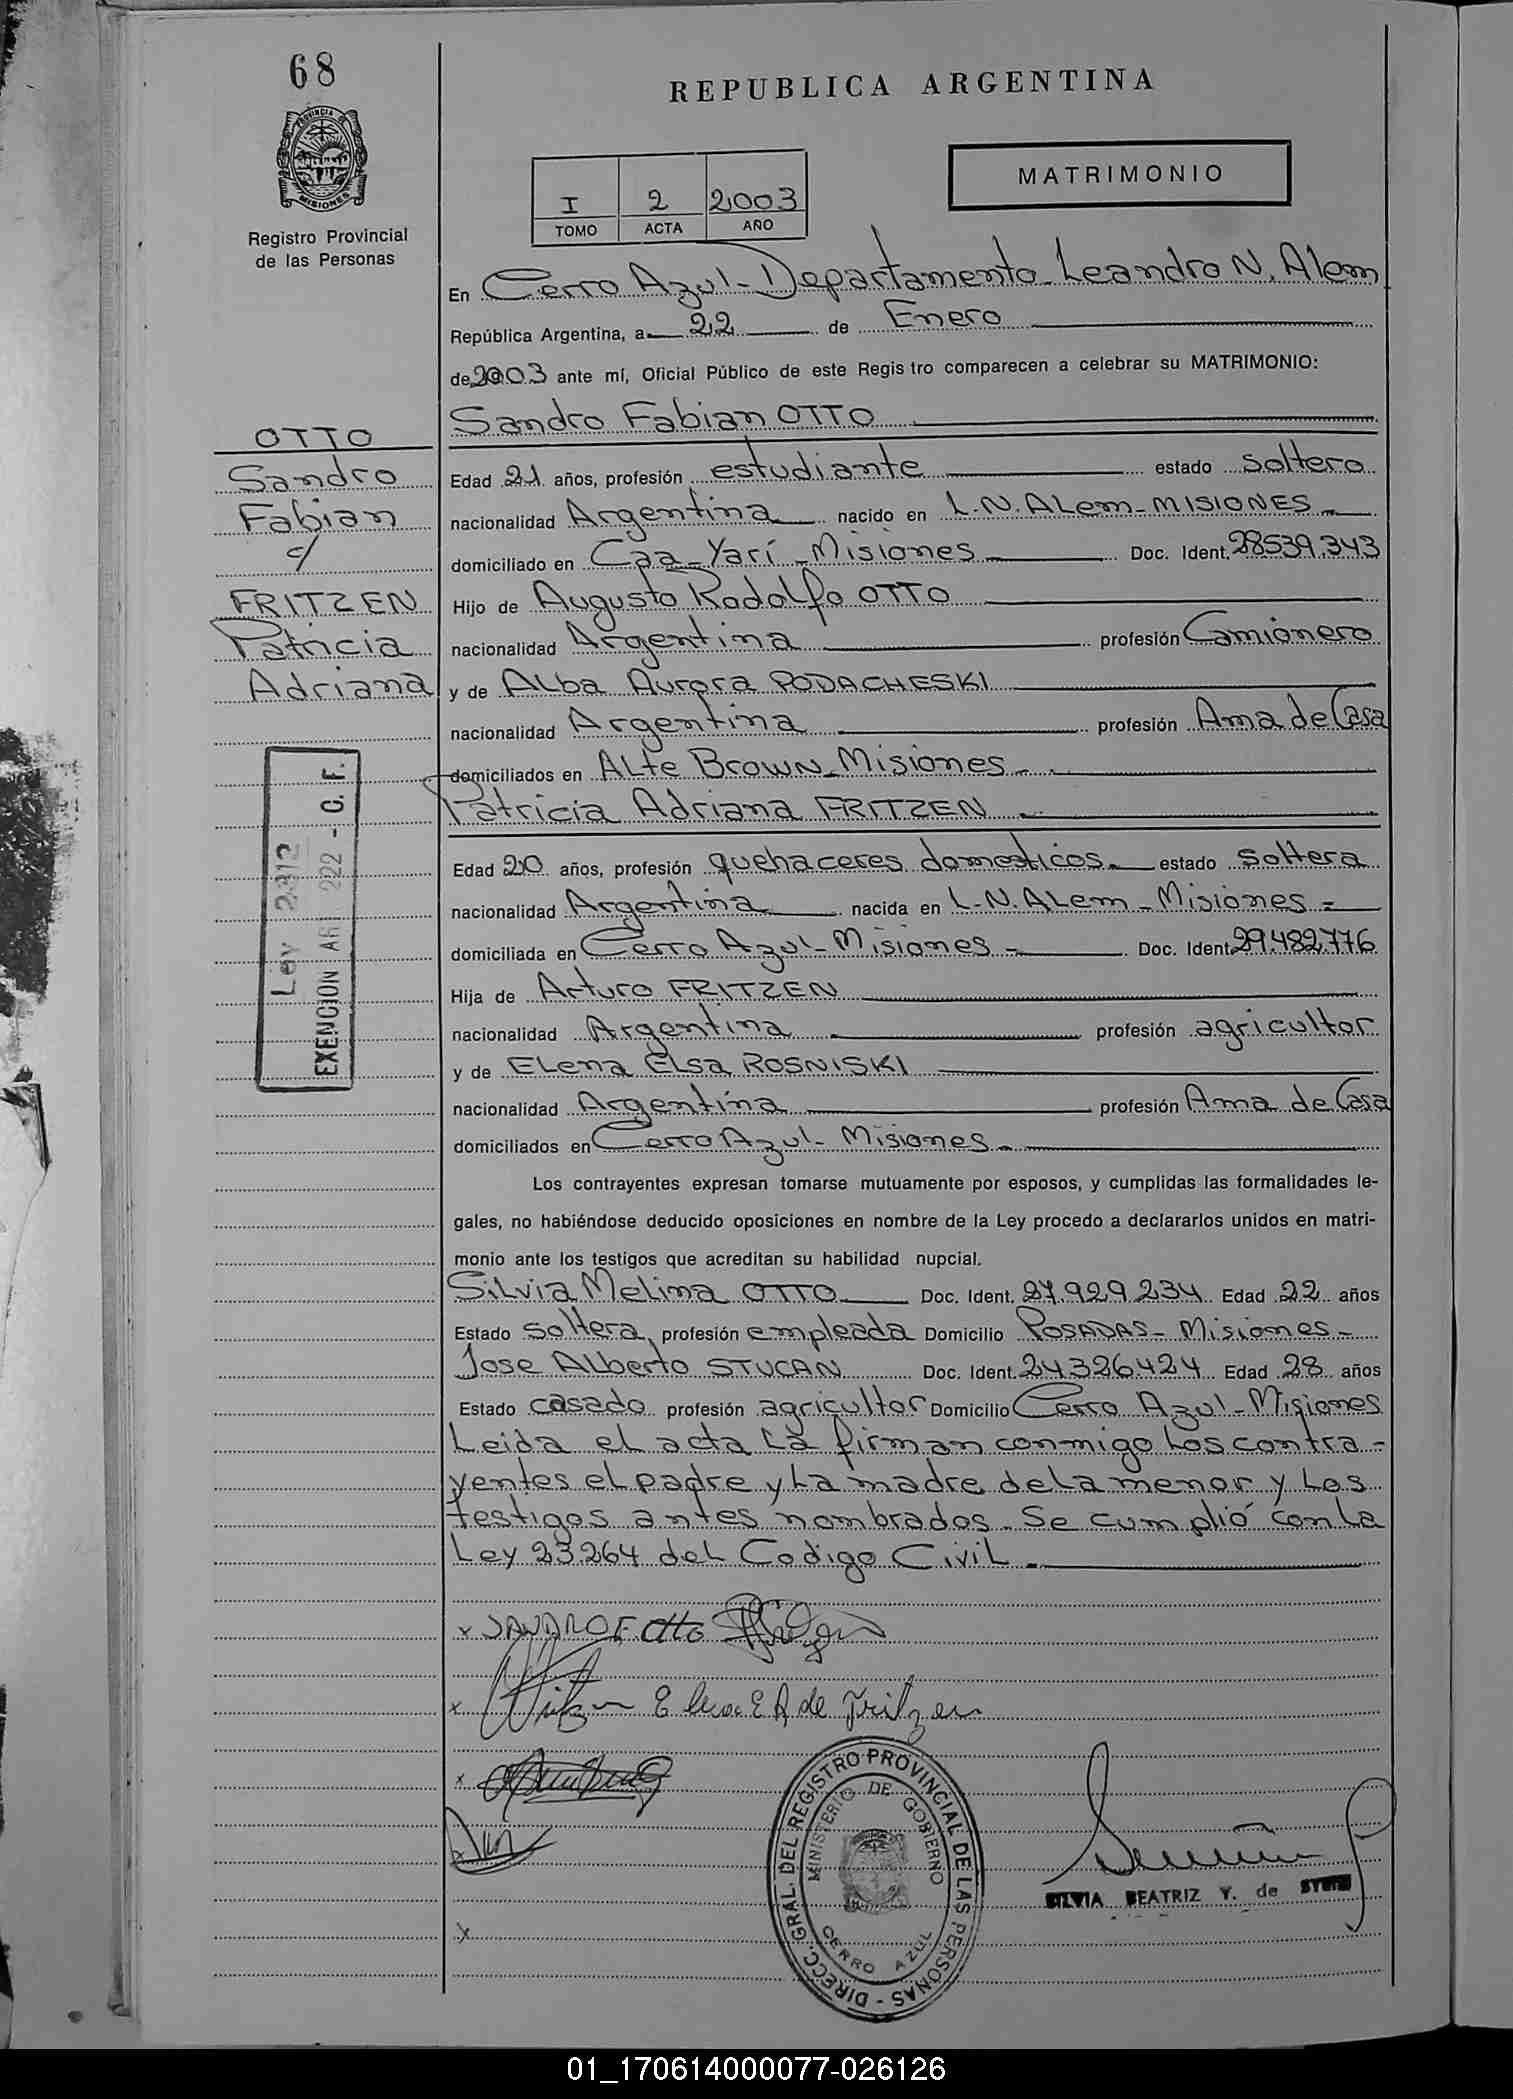 68
REPUBLICA ARGENTINA
PROVINCIA DE
MISIONES
Registro Provincial
de las Personas
MATRIMONIO
I 2 2003
TOMO ACTA AÑO
En Cerro Azul - Departamento Leandro N. Alem
República Argentina, a 22 de Enero
de 2003 ante mí, Oficial Público de este Registro comparecen a celebrar su MATRIMONIO:
Sandro Fabian OTTO
OTTO
Sandro
Fabian
c/
FRITZEN
Patricia
Adriana
Edad 21 años, profesión estudiante estado soltero
nacionalidad Argentina nacido en L.N. ALem - MISIONES
domiciliado en Caa-Yarí - Misiones Doc. Ident. 28.539.343
Hijo de Augusto Rodolfo OTTO
nacionalidad Argentina profesión Camionero
y de ALba Aurora PODACHESKI
nacionalidad Argentina profesión Ama de Casa
domiciliados en ALte Brown - Misiones
Patricia Adriana FRITZEN
Ley 2312
EXENCION AR 222 - C. F.
Edad 20 años, profesión quehaceres domesticos estado soltera
nacionalidad Argentina nacida en L.N. ALem - Misiones
domiciliada en Cerro Azul - Misiones Doc. Ident. 29.482.776
Hija de Arturo FRITZEN
nacionalidad Argentina profesión agricultor
y de ELena ELsa ROSNISKI
nacionalidad Argentina profesión Ama de Casa
domiciliados en Cerro Azul - Misiones
Los contrayentes expresan tomarse mutuamente por esposos, y cumplidas las formalidades le-
gales, no habiéndose deducido oposiciones en nombre de la Ley procedo a declararlos unidos en matri-
monio ante los testigos que acreditan su habilidad nupcial.
SiLvia Melina OTTO Doc. Ident. 27.929.234 Edad 22 años
Estado soltera profesión empleada Domicilio POSADAS - Misiones
Jose ALberto STUCAN Doc. Ident. 24326424 Edad 28 años
Estado casado profesión agricultor Domicilio Cerro Azul - Misiones
Leida el acta La firman conmigo Los contra-
yentes el padre y La madre de La menor y Los
testigos antes nombrados. Se cumplió con La
Ley 23264 del Codigo CiviL
x SANDRO F Otto
x Elena E R de Fritzen
x
x
x
DIRECC. GRAL. DEL REGISTRO PROVINCIAL DE LAS PERSONAS
MINISTERIO DE GOBIERNO
CERRO AZUL
SILVIA BEATRIZ Y. de
01_170614000077-026126